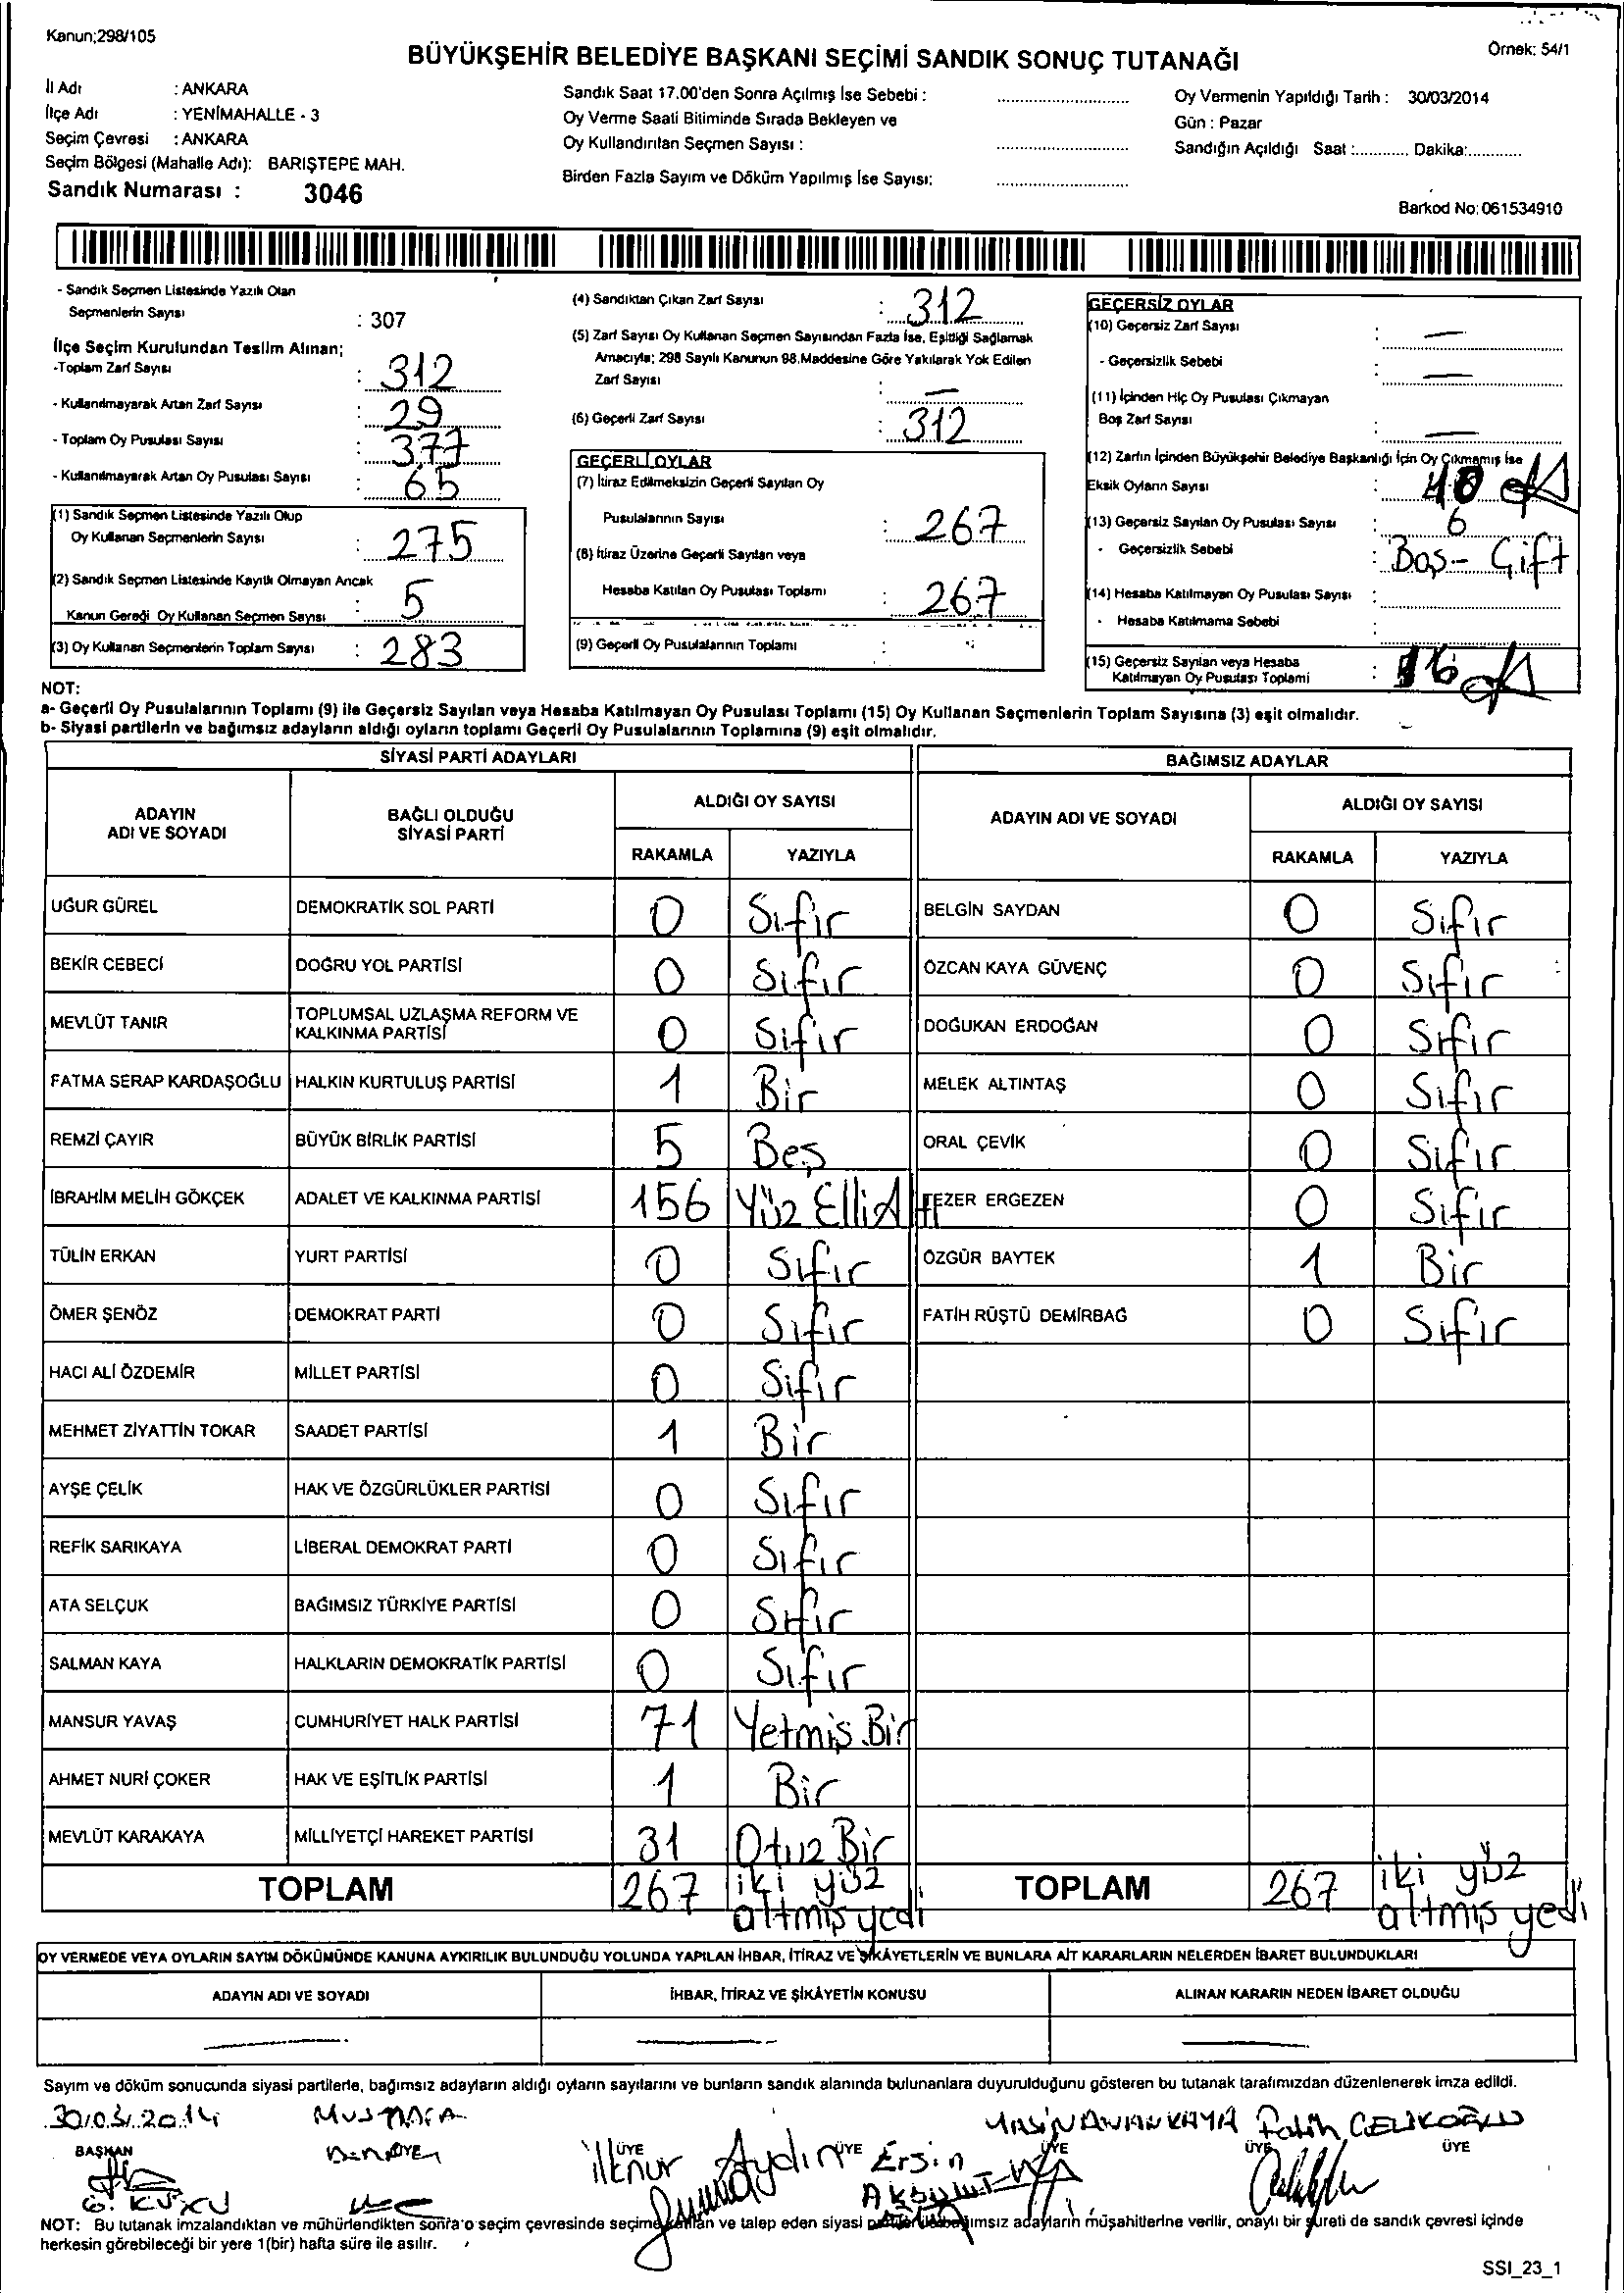 Kanun;298/105
Örnek: 54/1
BÜYÜKŞEHİR BELEDİYE BAŞKANI SEÇİMİ SANDIK SONUÇ TUTANAĞI
İl Adı : ANKARA
İlçe Adı : YENİMAHALLE - 3
Seçim Çevresi : ANKARA
Seçim Bölgesi (Mahalle Adı): BARIŞTEPE MAH.
Sandık Numarası : 3046
Sandık Saat 17.00'den Sonra Açılmış İse Sebebi :
Oy Verme Saati Bitiminde Sırada Bekleyen ve
Oy Kullandırılan Seçmen Sayısı :
Birden Fazla Sayım ve Döküm Yapılmış İse Sayısı:
Oy Vermenin Yapıldığı Tarih : 30/03/2014
Gün : Pazar
Sandığın Açıldığı Saat :........... Dakika:...........
Barkod No: 061534910
- Sandık Seçmen Listesinde Yazılı Olan
Seçmenlerin Sayısı : 307
İlçe Seçim Kurulundan Teslim Alınan;
-Toplam Zarf Sayısı : 312
- Kullanılmayarak Artan Zarf Sayısı : 29
- Toplam Oy Pusulası Sayısı : 377
- Kullanılmayarak Artan Oy Pusulası Sayısı : 65
(1) Sandık Seçmen Listesinde Yazılı Olup
Oy Kullanan Seçmenlerin Sayısı : 275
(2) Sandık Seçmen Listesinde Kayıtlı Olmayan Ancak
Kanun Gereği Oy Kullanan Seçmen Sayısı : 5
(3) Oy Kullanan Seçmenlerin Toplam Sayısı : 283
(4) Sandıktan Çıkan Zarf Sayısı : 312
(5) Zarf Sayısı Oy Kullanan Seçmen Sayısından Fazla İse, Eşitliği Sağlamak
Amacıyla; 298 Sayılı Kanunun 98.Maddesine Göre Yakılarak Yok Edilen
Zarf Sayısı : —
(6) Geçerli Zarf Sayısı : 312
GEÇERLİ OYLAR
(7) İtiraz Edilmeksizin Geçerli Sayılan Oy
Pusulalarının Sayısı : 267
(8) İtiraz Üzerine Geçerli Sayılan veya
Hesaba Katılan Oy Pusulası Toplamı : 267
(9) Geçerli Oy Pusulalarının Toplamı :
GEÇERSİZ OYLAR
(10) Geçersiz Zarf Sayısı : —
- Geçersizlik Sebebi : —
(11) İçinden Hiç Oy Pusulası Çıkmayan
Boş Zarf Sayısı : —
(12) Zarfın İçinden Büyükşehir Belediye Başkanlığı İçin Oy Çıkmamış İse
Eksik Oyların Sayısı :
(13) Geçersiz Sayılan Oy Pusulası Sayısı : 6
- Geçersizlik Sebebi : Boş- Çift
(14) Hesaba Katılmayan Oy Pusulası Sayısı :
- Hesaba Katılmama Sebebi :
(15) Geçersiz Sayılan veya Hesaba
Katılmayan Oy Pusulası Toplamı : 16
NOT:
a- Geçerli Oy Pusulalarının Toplamı (9) ile Geçersiz Sayılan veya Hesaba Katılmayan Oy Pusulası Toplamı (15) Oy Kullanan Seçmenlerin Toplam Sayısına (3) eşit olmalıdır.
b- Siyasi partilerin ve bağımsız adayların aldığı oyların toplamı Geçerli Oy Pusulalarının Toplamına (9) eşit olmalıdır.
SİYASİ PARTİ ADAYLARI
BAĞIMSIZ ADAYLAR
ADAYIN ADI VE SOYADI
BAĞLI OLDUĞU SİYASİ PARTİ
ALDIĞI OY SAYISI
RAKAMLA YAZIYLA
ADAYIN ADI VE SOYADI
ALDIĞI OY SAYISI
RAKAMLA YAZIYLA
UĞUR GÜREL DEMOKRATİK SOL PARTİ 0 Sıfır BELGİN SAYDAN 0 Sıfır
BEKİR CEBECİ DOĞRU YOL PARTİSİ 0 Sıfır ÖZCAN KAYA GÜVENÇ 0 Sıfır
MEVLÜT TANIR TOPLUMSAL UZLAŞMA REFORM VE KALKINMA PARTİSİ 0 Sıfır DOĞUKAN ERDOĞAN 0 Sıfır
FATMA SERAP KARDAŞOĞLU HALKIN KURTULUŞ PARTİSİ 1 Bir MELEK ALTINTAŞ 0 Sıfır
REMZİ ÇAYIR BÜYÜK BİRLİK PARTİSİ 5 Beş ORAL ÇEVİK 0 Sıfır
İBRAHİM MELİH GÖKÇEK ADALET VE KALKINMA PARTİSİ 156 Yüz Elli Altı TEZER ERGEZEN 0 Sıfır
TÜLİN ERKAN YURT PARTİSİ 0 Sıfır ÖZGÜR BAYTEK 1 Bir
ÖMER ŞENÖZ DEMOKRAT PARTİ 0 Sıfır FATİH RÜŞTÜ DEMİRBAĞ 0 Sıfır
HACI ALİ ÖZDEMİR MİLLET PARTİSİ 0 Sıfır
MEHMET ZİYATTİN TOKAR SAADET PARTİSİ 1 Bir
AYŞE ÇELİK HAK VE ÖZGÜRLÜKLER PARTİSİ 0 Sıfır
REFİK SARIKAYA LİBERAL DEMOKRAT PARTİ 0 Sıfır
ATA SELÇUK BAĞIMSIZ TÜRKİYE PARTİSİ 0 Sıfır
SALMAN KAYA HALKLARIN DEMOKRATİK PARTİSİ 0 Sıfır
MANSUR YAVAŞ CUMHURİYET HALK PARTİSİ 71 Yetmiş Bir
AHMET NURİ ÇOKER HAK VE EŞİTLİK PARTİSİ 1 Bir
MEVLÜT KARAKAYA MİLLİYETÇİ HAREKET PARTİSİ 31 Otuz Bir
TOPLAM 267 iki yüz altmış yedi TOPLAM 267 iki yüz altmış yedi
OY VERMEDE VEYA OYLARIN SAYIM DÖKÜMÜNDE KANUNA AYKIRILIK BULUNDUĞU YOLUNDA YAPILAN İHBAR, İTİRAZ VE ŞİKÂYETLERİN VE BUNLARA AİT KARARLARIN NELERDEN İBARET BULUNDUKLARI
ADAYIN ADI VE SOYADI İHBAR, İTİRAZ VE ŞİKÂYETİN KONUSU ALINAN KARARIN NEDEN İBARET OLDUĞU
Sayım ve döküm sonucunda siyasi partilerle, bağımsız adayların aldığı oyların sayılarını ve bunların sandık alanında bulunanlara duyurulduğunu gösteren bu tutanak tarafımızdan düzenlenerek imza edildi.
30/03/2014 MUSTAFA Fatih ÇELİKOĞLU
BAŞKAN ÜYE ÜYE ÜYE ÜYE ÜYE ÜYE
ilknur Aydın Ersin
Akbulut
NOT: Bu tutanak imzalandıktan ve mühürlendikten sonra o seçim çevresinde seçime katılan ve talep eden siyasi partiler ve bağımsız adayların müşahitlerine verilir, onaylı bir sureti de sandık çevresi içinde
herkesin görebileceği bir yere 1(bir) hafta süre ile asılır.
SSI_23_1